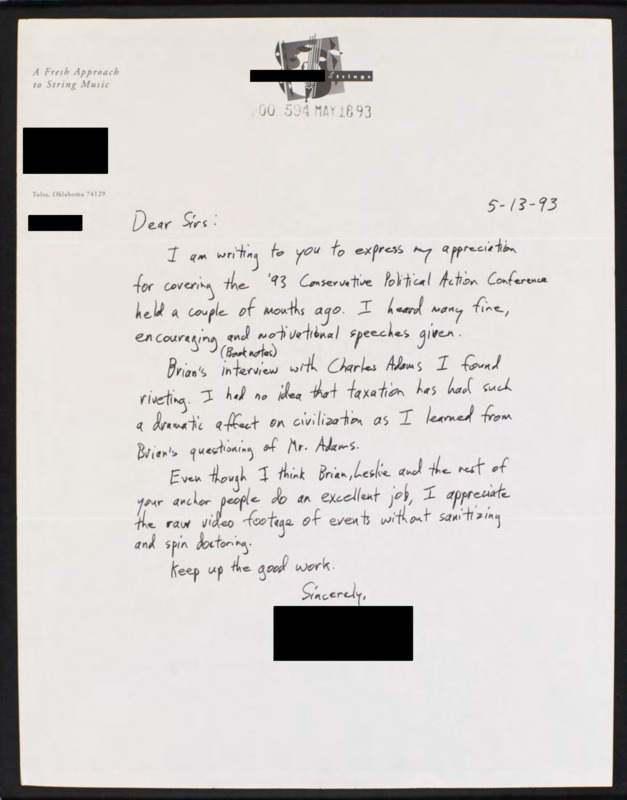 A Fresh Approach
to String Music
Strings
00 594 MAY 18 93
Tulsa, Oklahoma 74129
5-13-93
Dear Sirs:
I am writing to you to express my appreciation
for covering the '93 Conservative Political Action Conference
held a couple of months ago. I heard many fine,
encouraging and motivational speeches given.
(Booknotes)
Brian's interview with Charles Adams I found
riveting. I had no idea that taxation has had such
a dramatic affect on civilization as I learned from
Brian's questioning of Mr. Adams.
Even though I think Brian, Leslie and the rest of
your anchor people do an excellent job, I appreciate
the raw video footage of events without sanitizing
and spin doctoring.
Keep up the good work.
Sincerely,